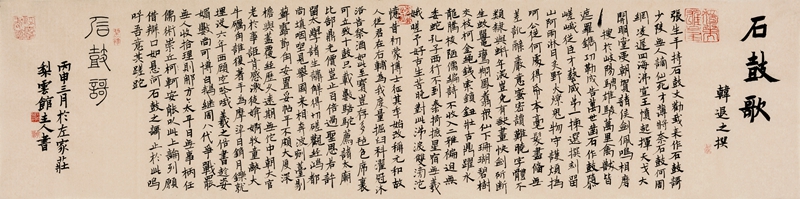 石鼓歌
韓退之撰
張生手持石鼓文勸我試作石鼓歌
少陵無人謫仙死才薄將奈石鼓何周
綱凌遲四海沸宣王憤起揮天戈大
開明堂受朝賀諸侯劍佩鳴相磨
蒐於岐陽騁雄俊萬里禽獸皆
遮羅鐫功勒成告萬世鑿石作鼓隳
嵯峨從臣才藝咸第一揀選撰刻留
山阿雨淋日炙野火燎鬼物守護煩撝
呵公從何處得紙本毫髮盡備無
差訛辭嚴義密讀難曉字體不
類隸與蝌年深豈免有缺畫快劍斫斷
生蛟鼉鸞翔鳳翥眾仙下珊瑚碧樹
交枝柯金繩鐵索鎖鈕壯古鼎躍水
龍騰梭陋儒編詩不收入二雅褊迫無
委蛇孔子西行不到秦掎摭星宿遺羲
娥嗟予好古生苦晚對此涕淚雙滂沱
憶昔初蒙博士徵其年始改稱元和故
人從軍在右輔為我度量掘臼科濯冠沐
浴告祭酒如此至寶存豈多氈包席裹
可立致十鼓只載數駱駝薦諸太廟
比郜鼎光價豈止百倍過聖恩若許
留太學諸生講解得切磋觀經鴻都
尚填咽坐見舉國來奔波剜苔剔
蘚露節角安置妥帖平不頗大廈深
簷與蓋覆經歷久遠期無佗中朝大官
老於事詎肯感激徒媕婀牧童敲火
牛礪角誰復著手為摩挲日銷月鑠就
埋沒六年西顧空吟哦羲之俗書趁姿
媚數紙尚可博白鵝繼周八代爭戰罷
無人收拾理則那方今太平日無事柄任
儒術崇丘軻安能以此上論列願
借辯口如懸河石鼓之歌止於此嗚
呼吾意其蹉跎
石鼓歌
丙申三月於左家莊
梨雲館主人書